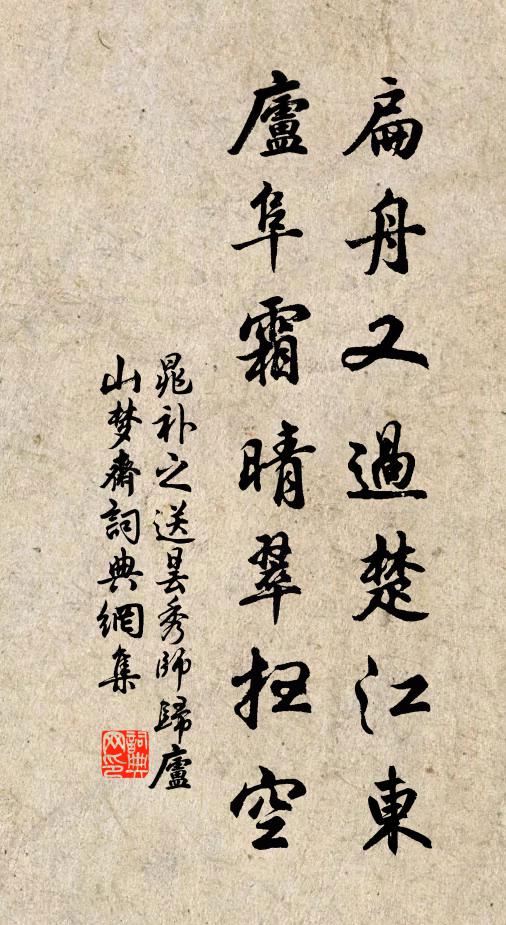 扁舟又過楚江東
廬阜霜晴翠扫空
晁补之送昙秀师歸廬
山梦齋詞典網集
詞典网印